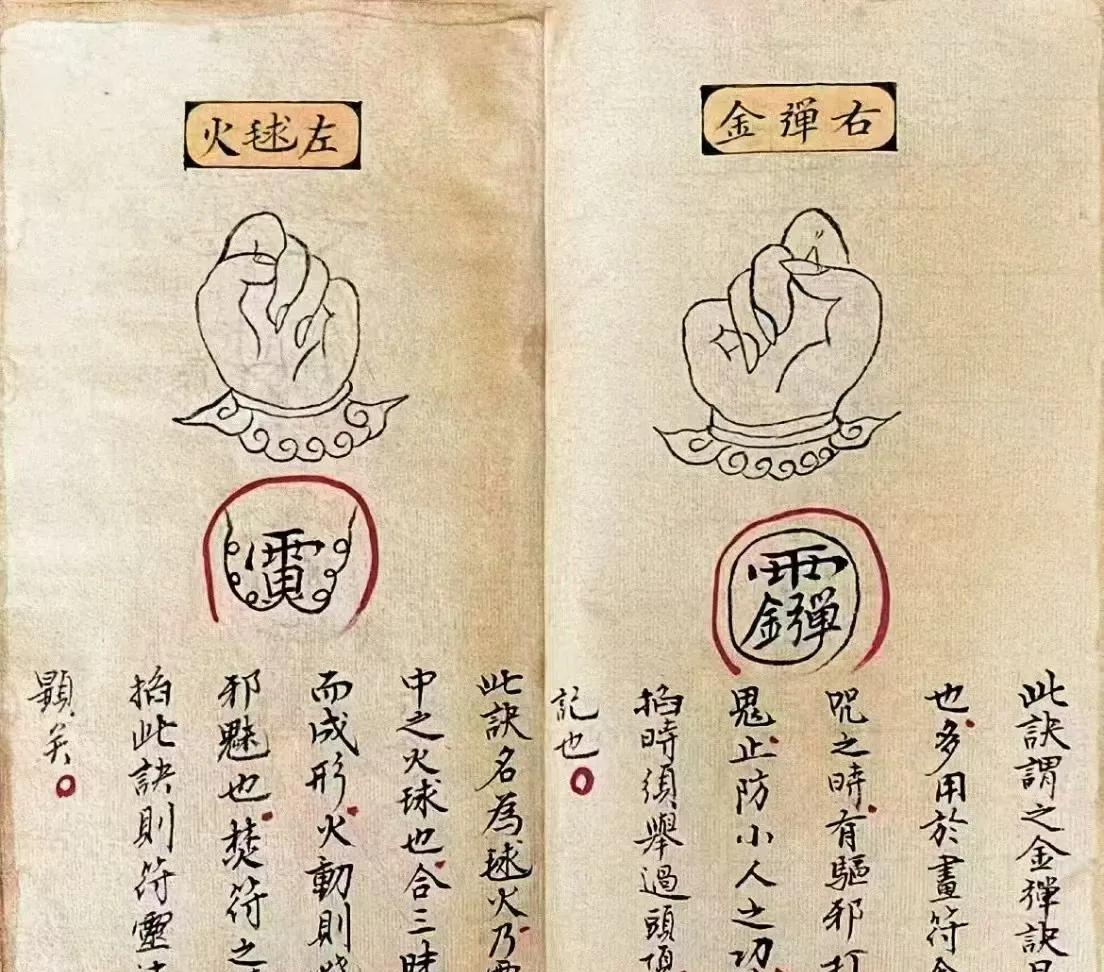 右彈金
此訣謂之金彈訣
也多用於畫符
咒之時有驅邪打
鬼止防小人之功
掐時須舉過頭頂
記也
左毬火
此訣名為毬火乃
中之火球也合三昧
而成形火動則
邪魅也焚符之
掐此訣則符靈
顯矣